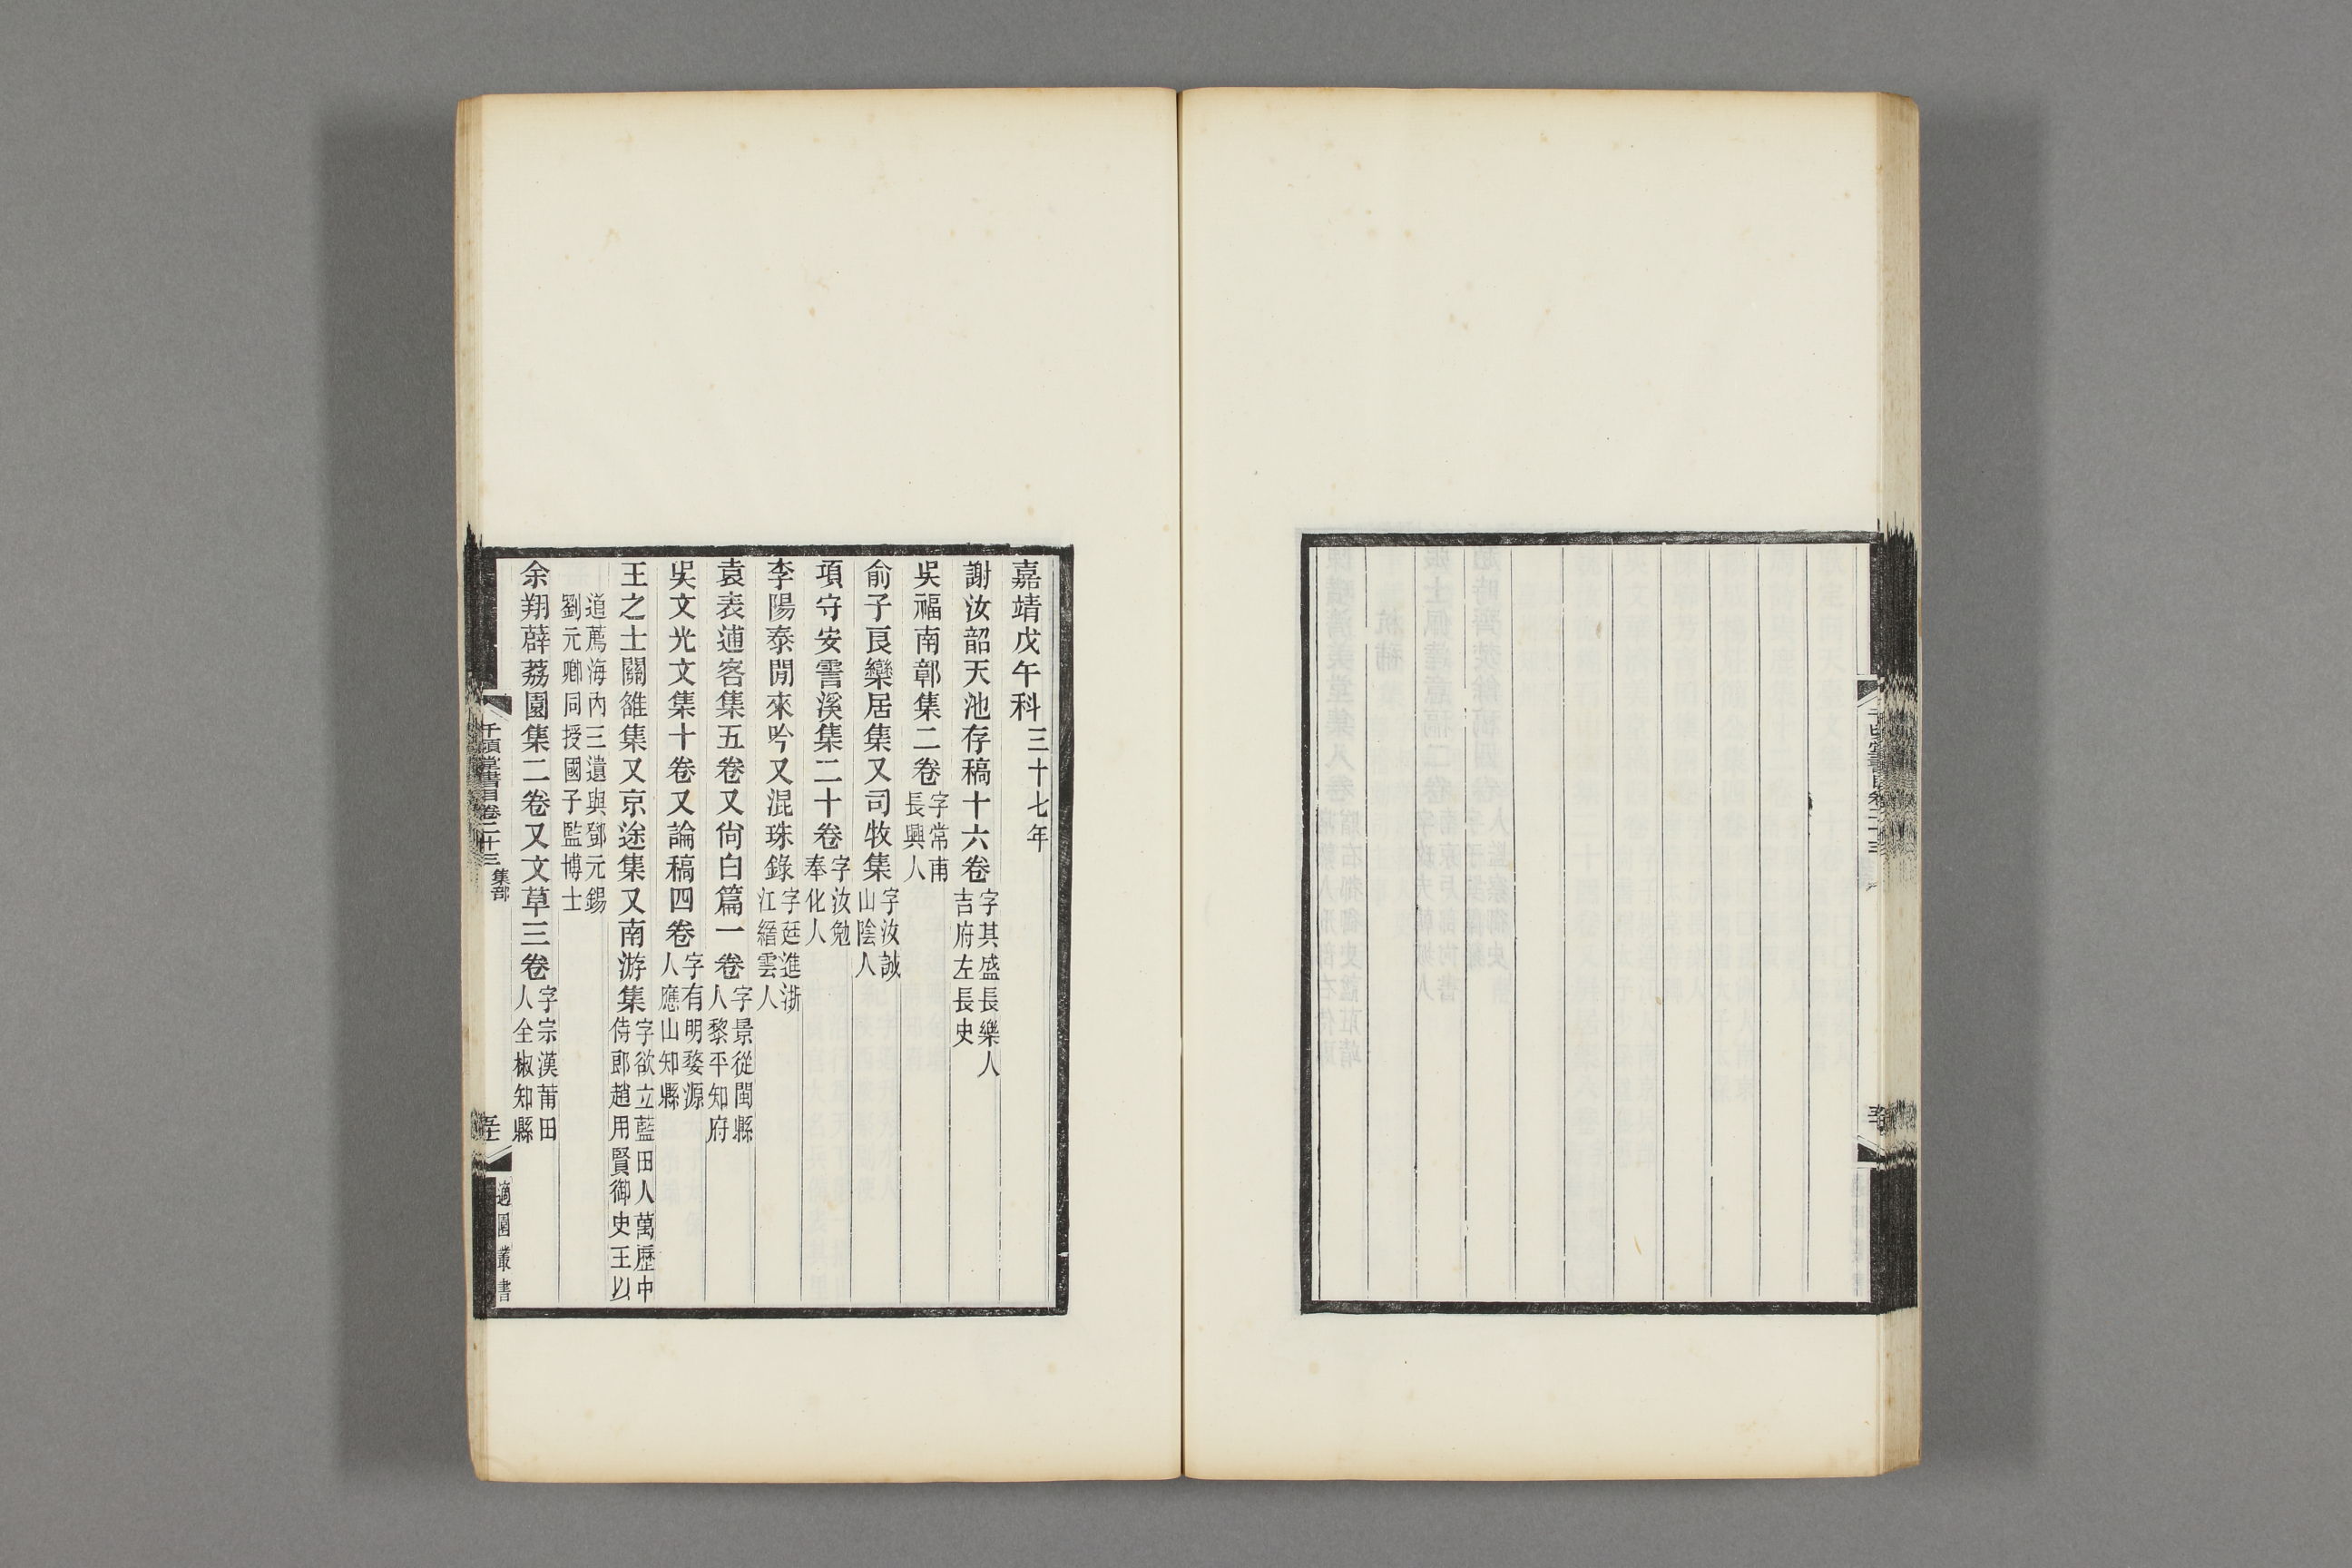 嘉靖戊午科三十七年
謝汝韶天池存稿十六卷字其盛長樂人吉府左長史
吳福南鄣集二卷字常甫長興人
俞子良欒居集又司牧集字汝誠山陰人
項守安霅溪集二十卷字汝勉奉化人
李陽泰閒來吟又混珠錄字廷進浙江縉雲人
袁表逋客集五卷又尙白篇一卷字景從閩縣人黎平知府
吳文光文集十卷又論稿四卷字有明婺源人應山知縣
王之士關雒集又京途集又南游集字欲立藍田人萬歷中侍郎趙用賢御史王以
道薦海內三遺與鄧元錫劉元卿同授國子監博士
余翔薜荔園集二卷又文草三卷字宗漢莆田人全椒知縣
千頃堂書目卷二十三 集部
適園叢書